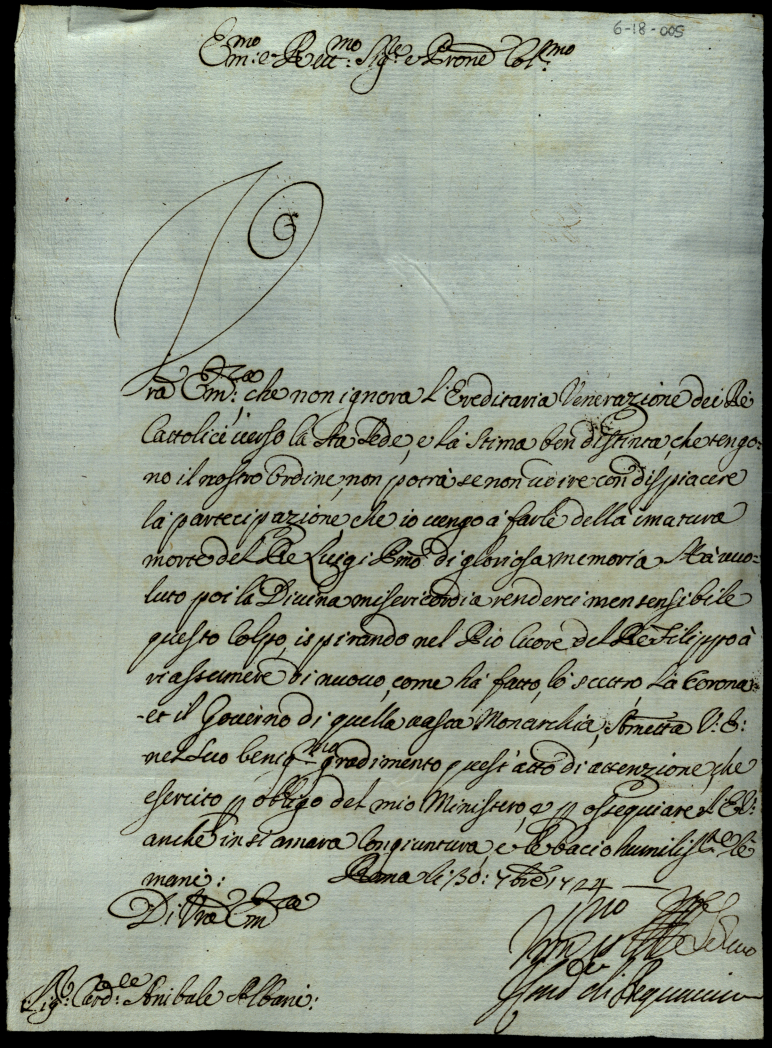 6-18-005
Em:mo e Reu:mo Sig.re e Prone Col:mo
Vra Em:za che non ignora l'Ereditaria Venerazione dei Re
Cattolici uerso la Sta Sede, e la Stima ben distinta, che tengo=
no il nostro Ordine, non potrà se non udire con dispiacere
la partecipazione, che io uengo à farle della imatura
morte del Re Luigi Pmo di gloriosa memoria. Hà uuo=
luto poi la Diuina misericordia renderci men sensibile
questo Colpo, ispirando nel Pio Cuore del Re Filippo à
riassumere di nuouo, come hà fatto, lo scettro, la Corona,
et il Gouerno di quella uasta Monarchia. Ametta V: E:
nel suo benig:mo gradimento quest'atto di attenzione, che
esercito p obligo del mio Ministero, e p ossequiare l'E.V:
anche in sì amara Congiuntura, e le bacio humilis:te le
mani: Roma li 30: 7bre 1724
Di Vra Em:za
Sig:r Card:le Anibale Albani: